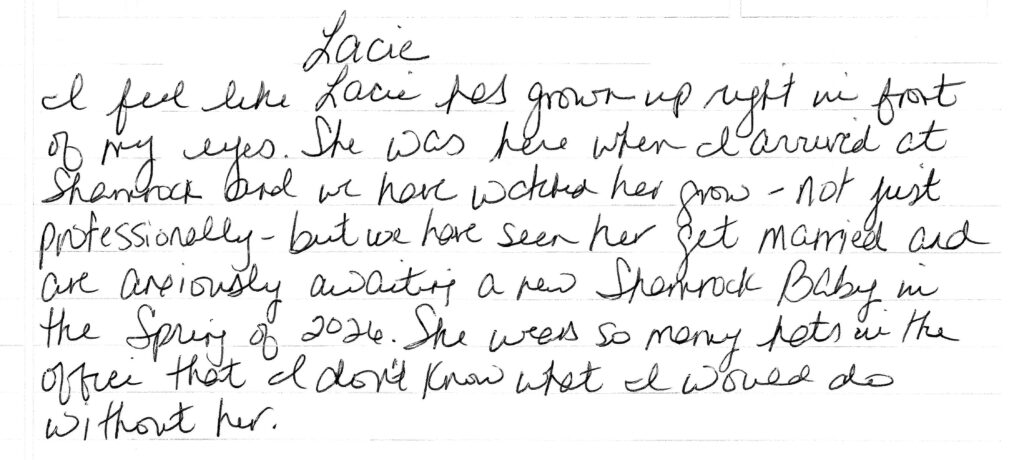 Lacie
I feel like Lacie has grown up right in front
of my eyes. She was here when I arrived at
Shamrock and we have watched her grow - not just
professionally - but we have seen her get married and
are anxiously awaiting a new Shamrock Baby in
the Spring of 2026. She wears so many hats in the
office that I don't know what I would do
without her.